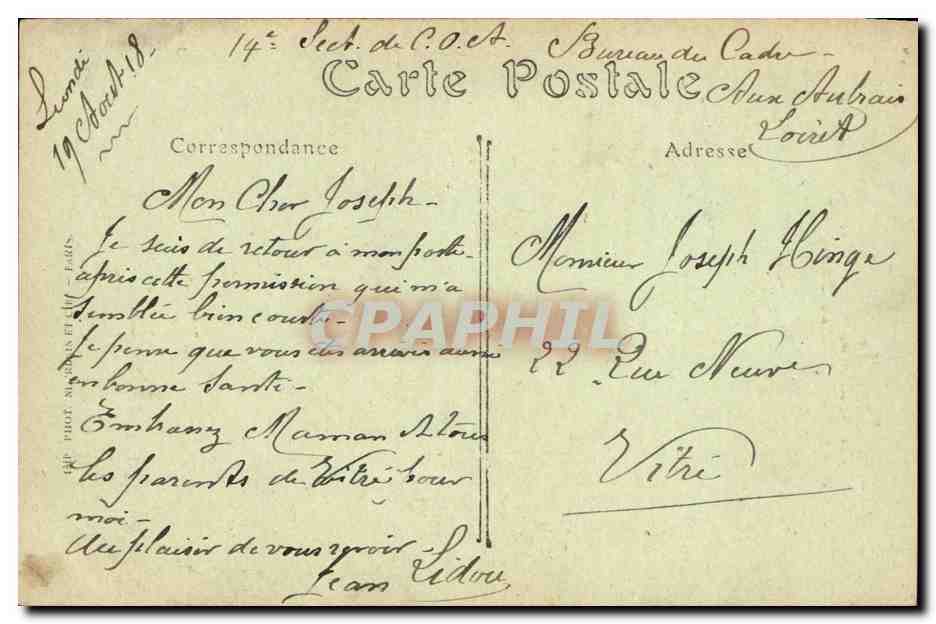 14e Sect. de C.O.A. Bureau du Cadre
Aux Aubrais
Loiret
Lundi
19 Aout 18
Carte Postale
Correspondance
Adresse
Mon Cher Joseph -
Je suis de retour à mon poste
après cette permission qui m'a
semblée bien courte -
Je pense que vous êtes arrivés aussi
en bonne santé -
Embrassez Maman et tous
les parents de Vitré pour
moi -
Au plaisir de vous revoir
Jean Lidou
Monsieur Joseph Hinge
22 Rue Neuve
Vitré
IMP. PHOT. PARIS
CPAPHIL